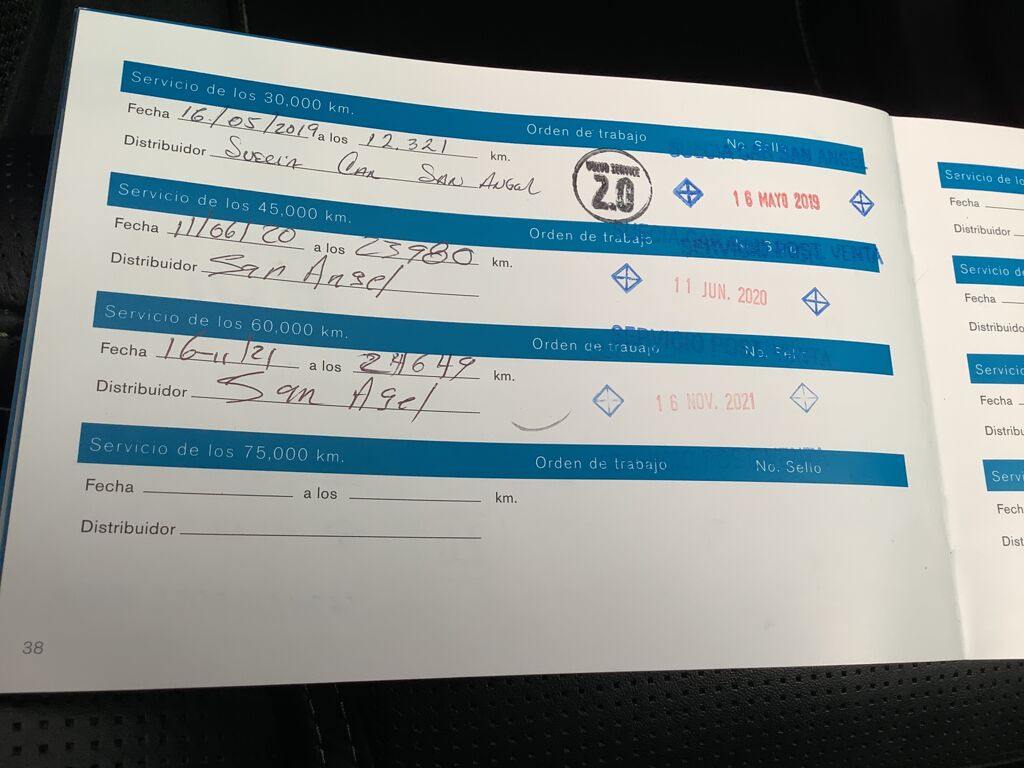 Servicio de los 30,000 km. Orden de trabajo No. Sello
Fecha 16/05/2019 a los 12.321 km. SUECIA CAR SAN ANGEL
Distribuidor Suecia Car San Angel VOLVO SERVICE 2.0 16 MAYO 2019
Servicio de los 45,000 km. Orden de trabajo No. Sello
SERVICIO POST VENTA
Fecha 11/06/20 a los 23980 km.
Distribuidor San Angel 11 JUN. 2020
Servicio de los 60,000 km. Orden de trabajo No. Sello
SERVICIO POST VENTA
Fecha 16-11/21 a los 24649 km.
Distribuidor San Agel 16 NOV. 2021
Servicio de los 75,000 km. Orden de trabajo No. Sello
Fecha a los km.
Distribuidor
38
Servicio de lo
Fecha
Distribuidor
Servicio de
Fecha
Distribuido
Servicio
Fecha
Distribu
Servi
Fech
Dist